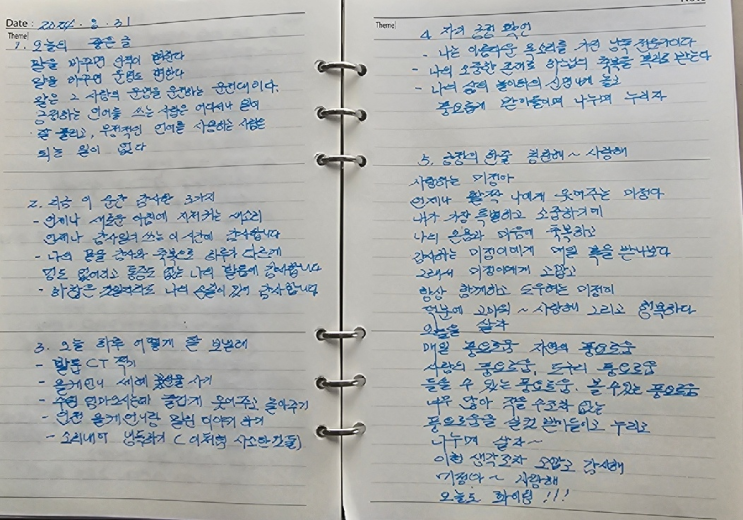 Date : 2024. 8. 31
Theme
1. 오늘의 좋은 글
말을 바꾸면 운명이 변한다
말은 그 사람의 운명을 운전하는 운전대이다.
긍정하는 언어를 쓰는 사람은 어디서나 일이
잘 풀리고, 부정적인 언어를 사용하는 사람은
되는 일이 없다
2. 지금 이 순간 감사한 3가지
- 언제나 새로운 아침에 지저귀는 새소리
언제나 감사일기 쓰는 이 시간에 감사합니다
- 나의 몸을 감사와 축복으로 하루가 다르게
멍도 없어지고 통증도 없는 나의 발등에 감사합니다
- 나의 감사합니다
3. 오늘 하루 어떻게 잘 보낼래
- 발등 CT 찍기
- 사기
- 즐겁게 웃어주고 놀아주기
- 언니랑 이야기 하기
- 소리내어 낭독하기 ( 사소한 것들)
Theme
4. 자기 긍정 확언
- 나는 아름다운 목소리를 가진 낭독 전문가이다
- 나의 소중한 존재로 하느님의 축복을 받는다
- 나의 삶의 놀이터의 신명나게 놀고
풍요롭게 받아들이며 나누며 누리자
5. 긍정의 한줄 ~ 사랑해
사랑하는 미정아
언제나 활짝 나에게 웃어주는 미정아
내가 가장 특별하고 소중하기에
나의 몸과 마음에 축복하고
감사하는 미정이에게 매일 복을 받나보다
그래서 미정이에게 고맙고
항상 함께하고 도우하는 미정이
덕분에 고마워 ~ 사랑해 그리고 행복하다
오늘을 살자
매일 풍요로움 자연의 풍요로움
사람의 풍요로움, 도구의 풍요로움
들을 수 있는 풍요로움, 볼 수 있는 풍요로움
너무 많아 적을 수조차 없는
풍요로움을 받아들이고 누리고
나누며 살자~
이런 생각조차 고맙고 감사해
미정아 ~ 사랑해
오늘도 화이팅 !!!